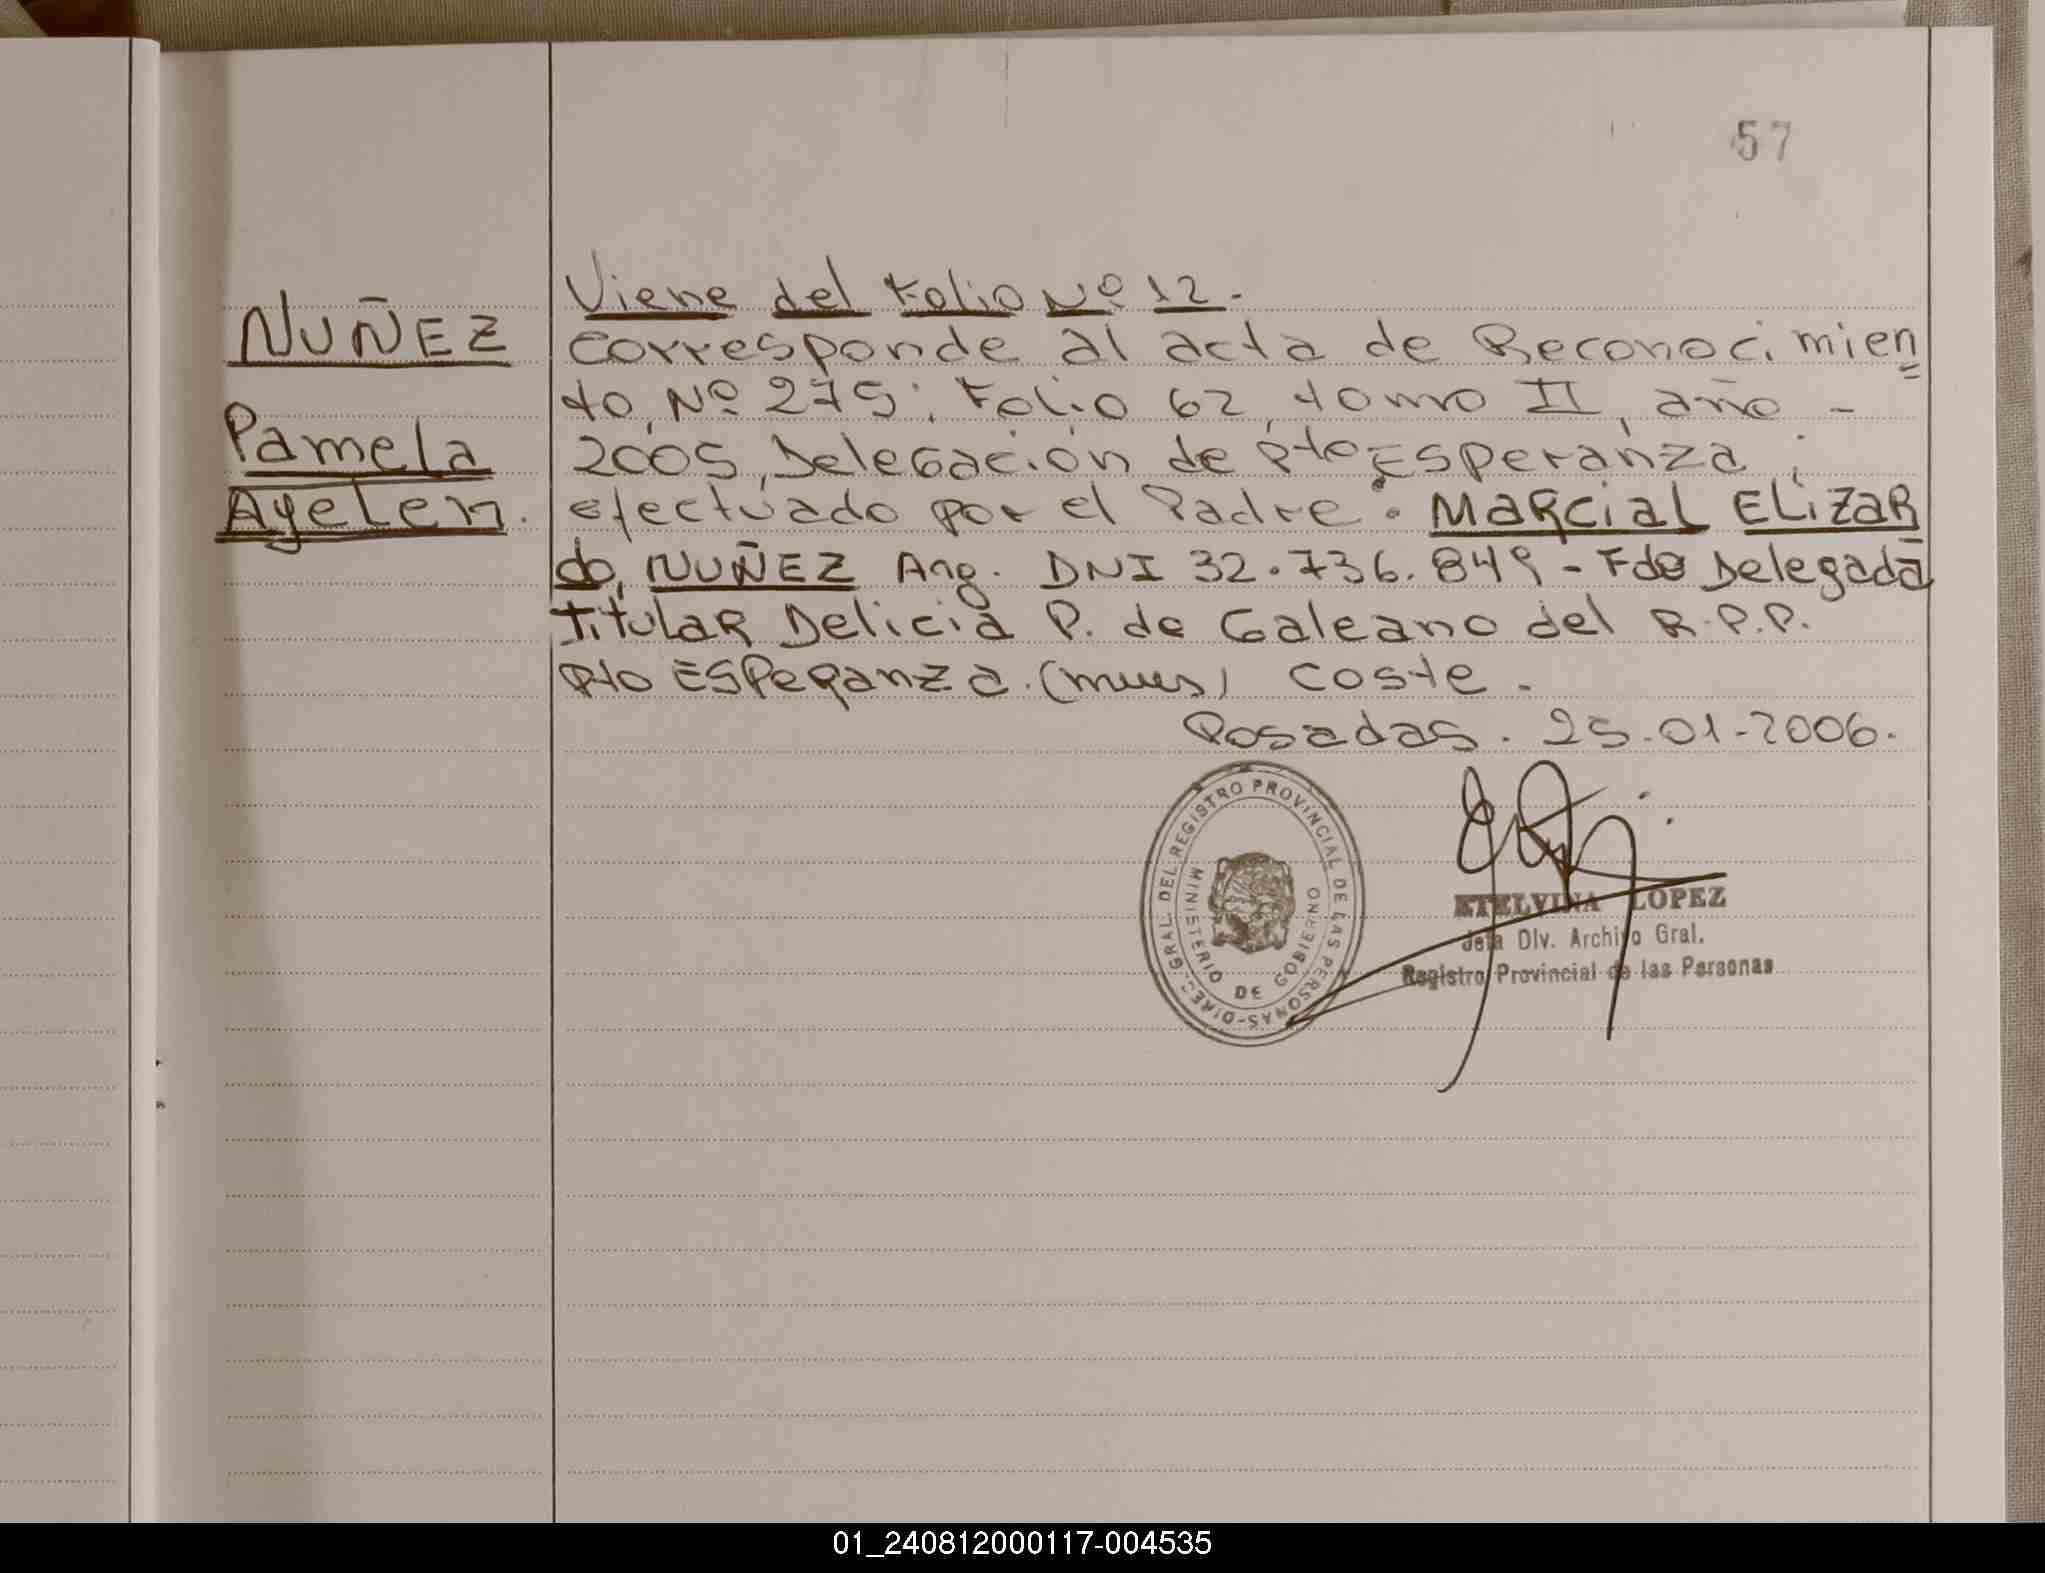 57
NUÑEZ
Pamela
Ayelen.
Viene del Folio Nº 12.-
Corresponde al acta de Reconocimien
to, Nº 275; Folio 62, tomo II, año -
2005, Delegación de Pto Esperanza;
efectuado por el Padre: MARCIAL ELIZAR
do, NUÑEZ Arg. DNI 32.736.849 - Fdo Delegada
TITULAR Delicia P. de Galeano del R.P.P.
Pto ESPERANZA. (mnes) Coste.
Posadas. 25-01-2006.
DIREC. GRAL. DEL REGISTRO PROVINCIAL DE LAS PERSONAS-
MINISTERIO DE GOBIERNO
ETELVINA LOPEZ
Jefa Div. Archivo Gral.
Registro Provincial de las Personas
01_240812000117-004535